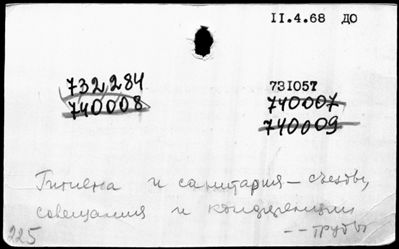 II.4.68 ДО
732,284 73I05T
740008 740007
740009
Гигиена и санитария – съезды,
совещания и конференции
-- труды
225